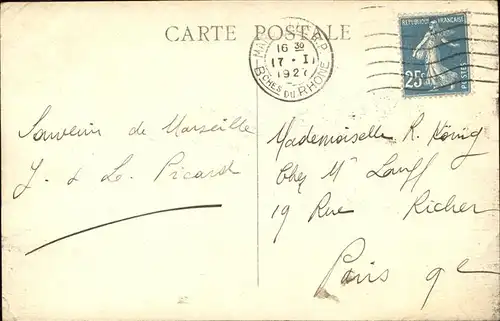 CARTE POSTALE
16 30
17 - I
1927
Bches DU RHÔNE
REPUBLIQUE FRANÇAISE
25c
POSTES
Souvenir de Marseille
J. & L. Picard
Mademoiselle R. König
Chez Mr Lauff
19 Rue Richer
Paris 9e